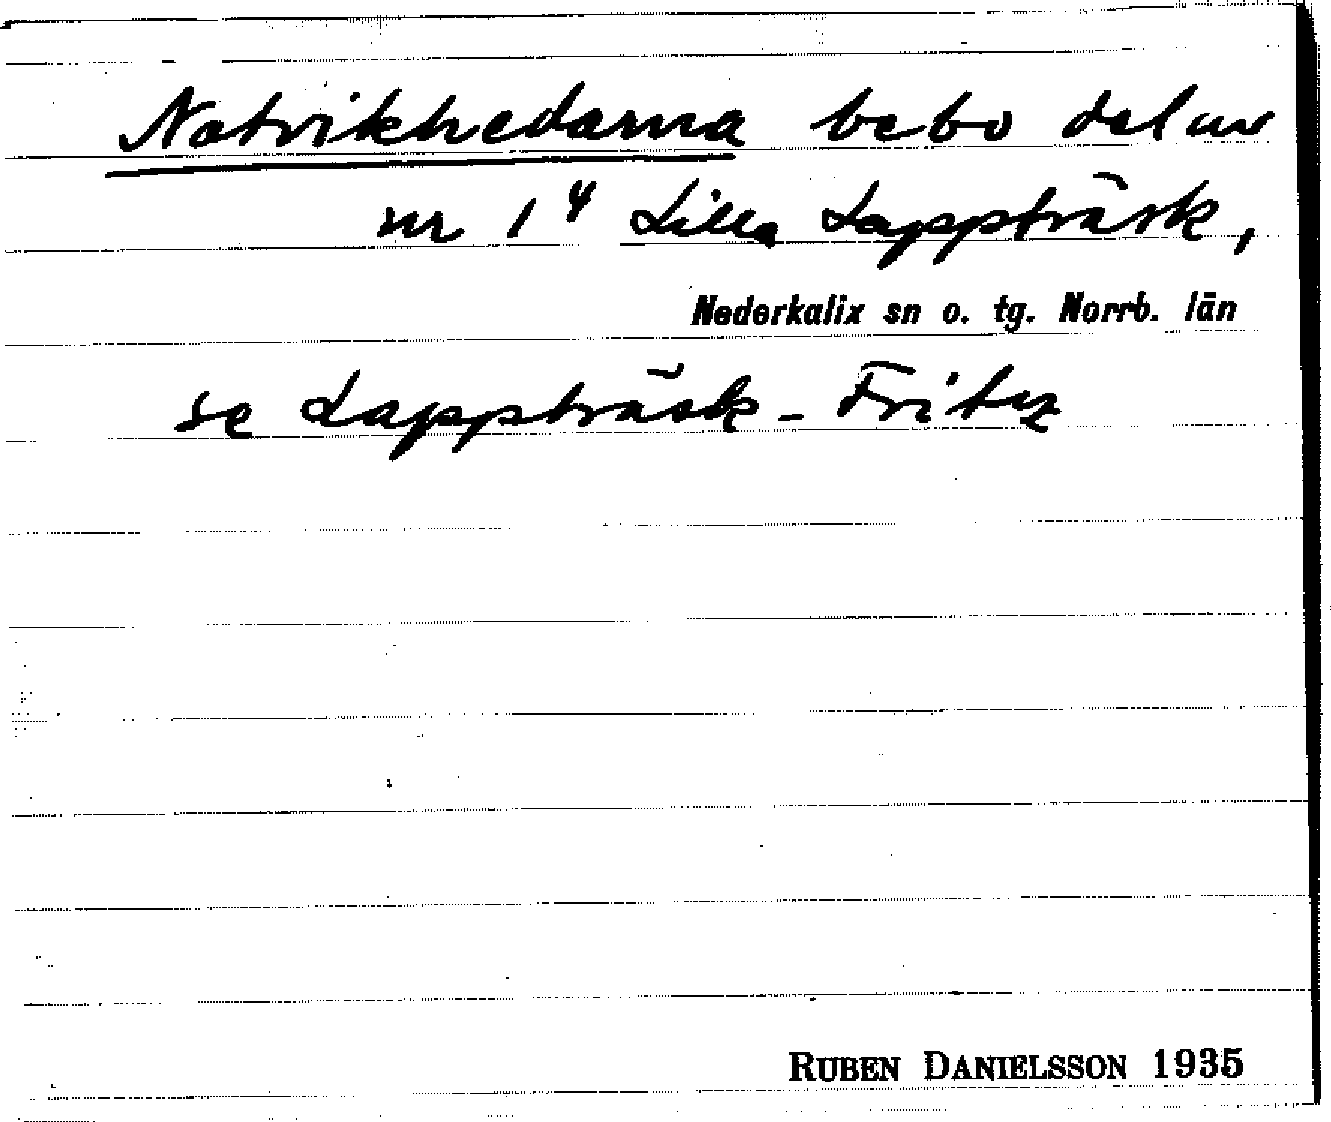 Notvikhedarna bebo del av
nr 1⁴ Lilla Lappträsk,
Nederkalix sn o. tg. Norrb. län
se Lappträsk - Fritz
RUBEN DANIELSSON 1935